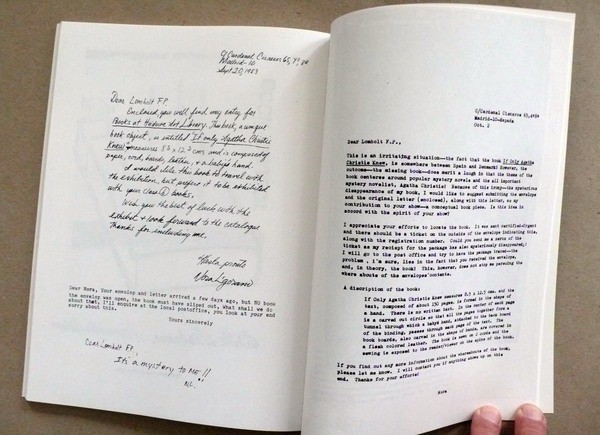 c/ Cardenal Cisneros 65, 7º
Madrid-10
Sept 20, 1983
Dear Lomholt F.P.
Enclosed, you will find my entry for
Books at Hedone Art Library. This book, a unique
book object, is entitled If only Agatha Christie
Knew, measures 8.5 x 12.5 cms and is composed of
paper, cord, boards, leather, + a baby's hand.
I would like this book to travel with
the exhibition, but prefer it to be exhibited
with your class books.
Wish you the best of luck with the
exhibit + look forward to the catalogue
Thanks for including me.
Hasta pronto
Dear Nora, Your envelop and letter arrived a few days ago, but NO book
the envelop was open, the book must have sliped out, what shall we do
about that, I'll enquire at the local postoffice, you look at your end
sorry about this.
Yours sincerely
Dear Lomholt F.P.
It's a mystery to ME!!
c/Cardenal Cisneros 65,
Madrid-10-España
Oct. 2
Dear Lomholt F.P.,
This is an irritating situation--the fact that the book If Only Agatha
Christie Knew, is somewhere between Spain and Denmark! However, the
outcome--the missing book--does merit a laugh in that the theme of the
book centers around popular mystery novels and the all important
mystery novelist, Agatha Christie! Because of this irony--the mysterious
disappearance of my book, I would like to suggest submitting the envelope
and the original letter (enclosed), along with this letter, as my
contribution to your show--a conceptual book piece. Is this idea in
accord with the spirit of your show?
I appreciate your efforts to locate the book. It was sent certified-urgent
and there should be a ticket on the outside of the envelope indicating this,
along with the registration number. Could you send me a xerox of the
ticket as my reciept for the package has also mysteriously disappeared;
I will go to the post office and try to have the package traced--the
problem, I'm sure, lies in the fact that you received the envelope,
and, in theory, the book! This, however, does not stop me pursuing the
where abouts of the envelopes' contents.
A discription of the book:
If Only Agatha Christie Knew measures 8.5 x 12.5 cms. and the
text, composed of about 250 pages, is formed in the shape of
a hand. There is no written text. In the center of each page
is a carved out circle so that all the pages together form a
tunnel through which a babys hand, attached to the back board
of the binding, passes through each page of the text. The
book boards, also carved in the shape of hands, are covered in
a flesh colored leather. The book is sewn on 2 cords and the
sewing is exposed to the reader/viewer on the spine of the book.
If you find out any more information about the whereabouts of the book,
please let me know. I will contact you if anything shows up on this
end. Thanks for your efforts!
Nora